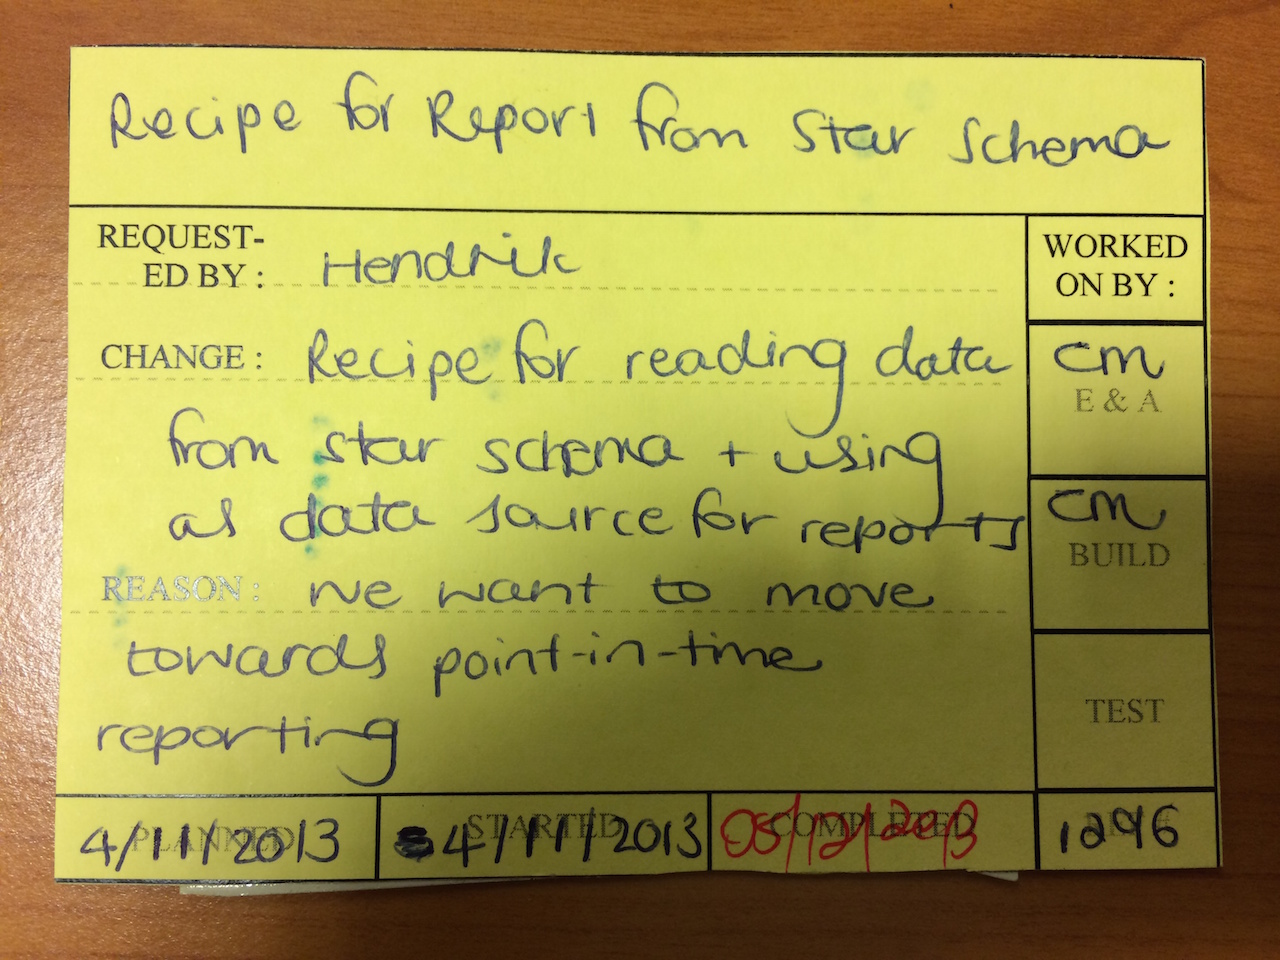 Recipe for Report from Star Schema
REQUEST-
ED BY : Hendrik
WORKED
ON BY :
CHANGE : Recipe for reading data
from star schema + using
as data source for reports
CM
E & A
CM
BUILD
REASON : we want to move
towards point-in-time
reporting
TEST
PLANNED
4/11/2013
STARTED
4/11/2013
COMPLETED
05/12/2013
1296